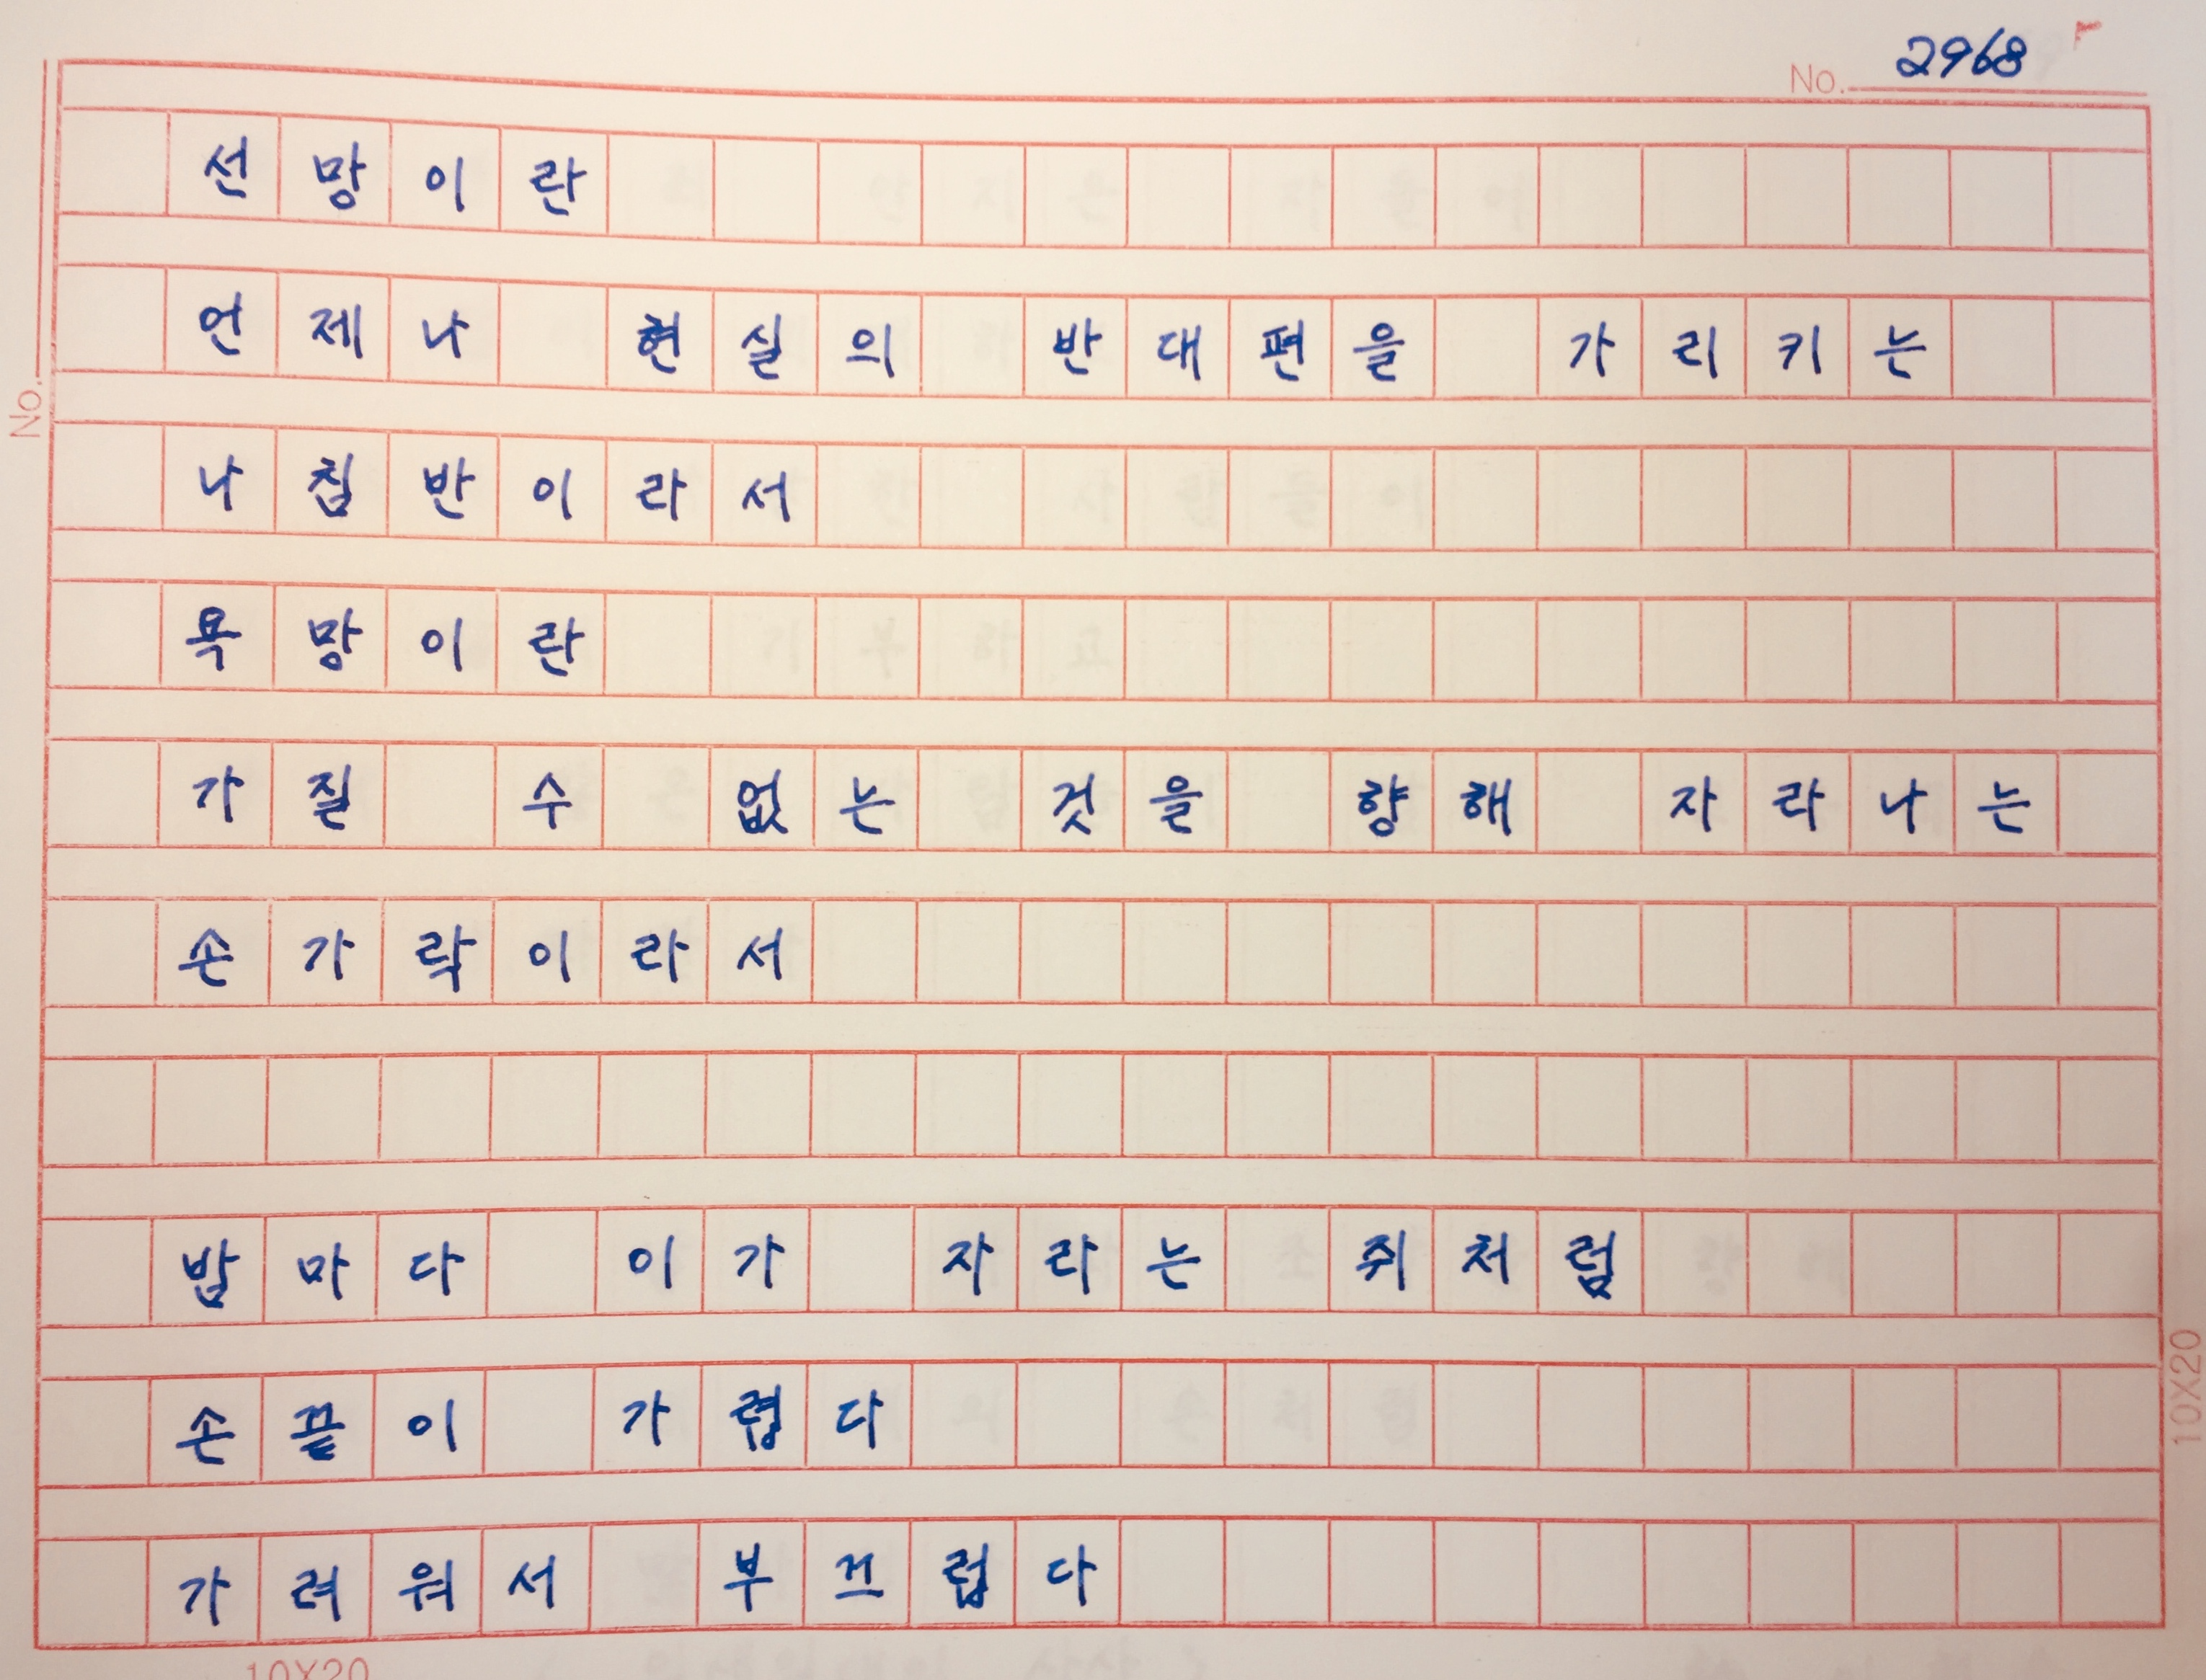 No. 2968
선망이란
언제나 현실의 반대편을 가리키는
나침반이라서
욕망이란
가질 수 없는 것을 향해 자라나는
손가락이라서
밤마다 이가 자라는 쥐처럼
손끝이 가렵다
가려워서 부끄럽다
No.
10X20
10X20